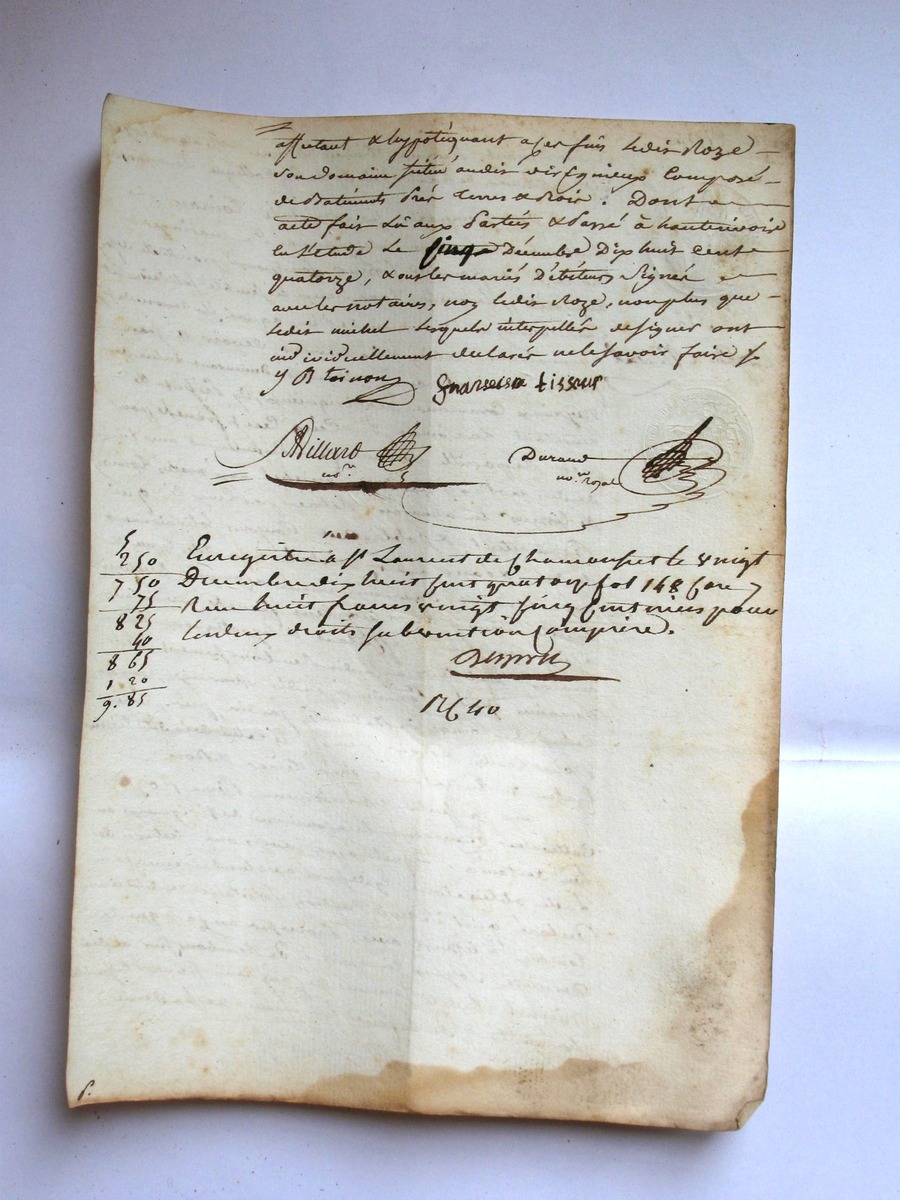 affectant & hyppotéquant a ses fins ledit Roze
son domaine situé audit composé
de Batiments Prés Terres & Bois. Dont
acte fait lû aux Parties & Passé à hauterivoire
en l'étude le cinq Décembre Dix huit cent
quatorze, & ont les mariés Débiteurs Signé
avec les notaires, non ledit Roze, non plus que
ledit michel lesquels interpellés de signer ont
individuellement declaré ne le savoir faire
J B toinon françoise tisseur
Villard Durand
no.re no.re Royal
Enregistré a St Laurent de Chamousset le vingt
Decembre dix huit cent quatorze fol 148 Case 7
Reçu huit francs vingt cinq centimes pour
les deux droits subvention comprise.
5
2 50
7 50
75
8 25
40
8 65
1 20
9. 85
40